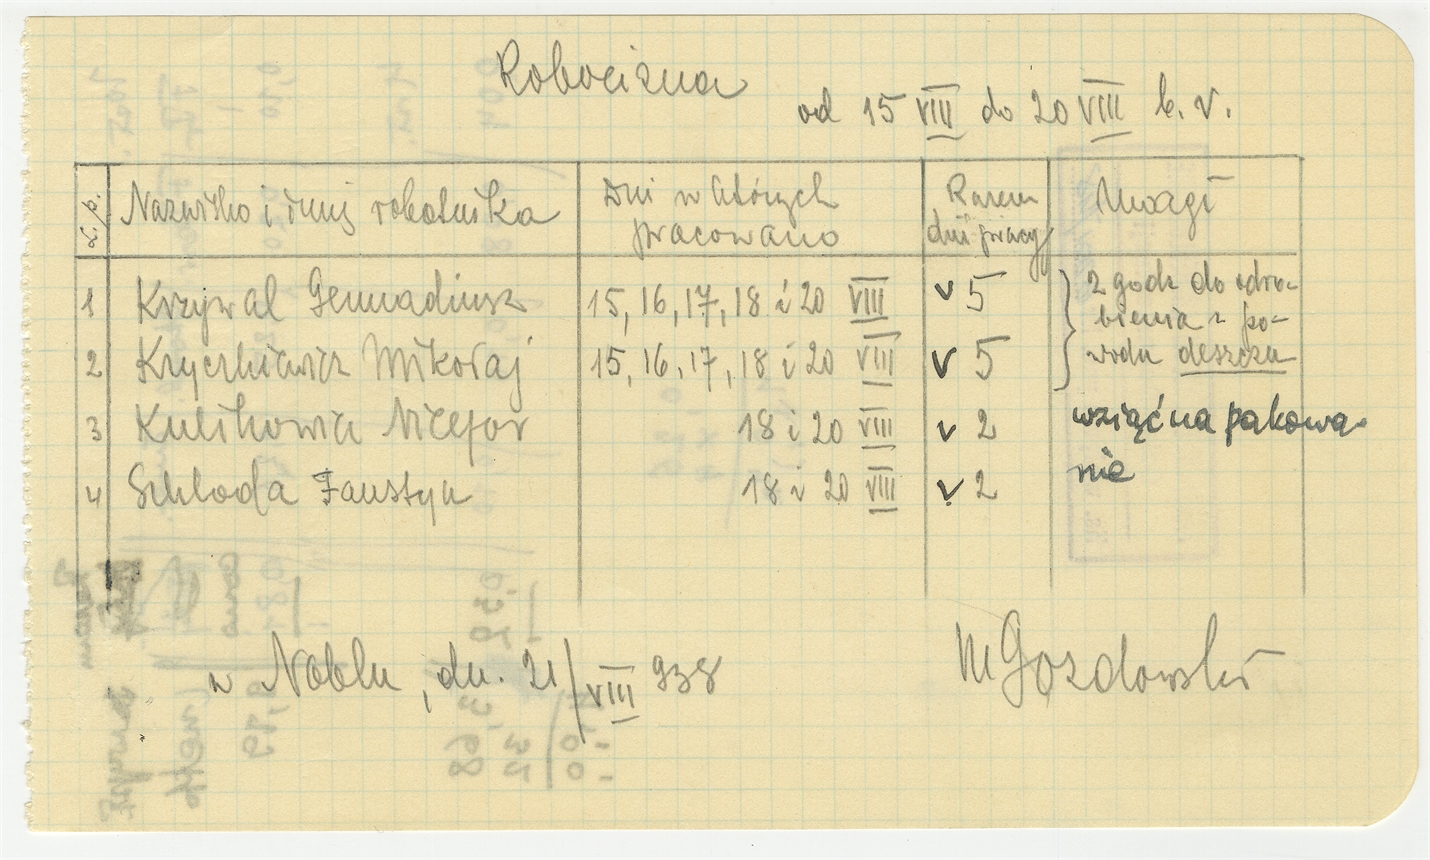 Robocizna
od 15 VIII do 20 VIII b. r.
L. p.
Nazwisko i imię robotnika
Dni w których
pracowano
Razem
dni pracy
Uwagi
1 Krzywal Gennadiusz 15, 16, 17, 18 i 20 VIII v 5
2 godz do odro-
bienia z po-
wodu deszczu
2 Kryczkiewicz Mikołaj 15, 16, 17, 18 i 20 VIII v 5
3 Kulikowicz Nicefor 18 i 20 VIII v 2
wziąć na pakowa-
nie
4 Szkłoda Faustyn 18 i 20 VIII v 2
w Noblu, dn. 21/VIII 938
M Gozdowski